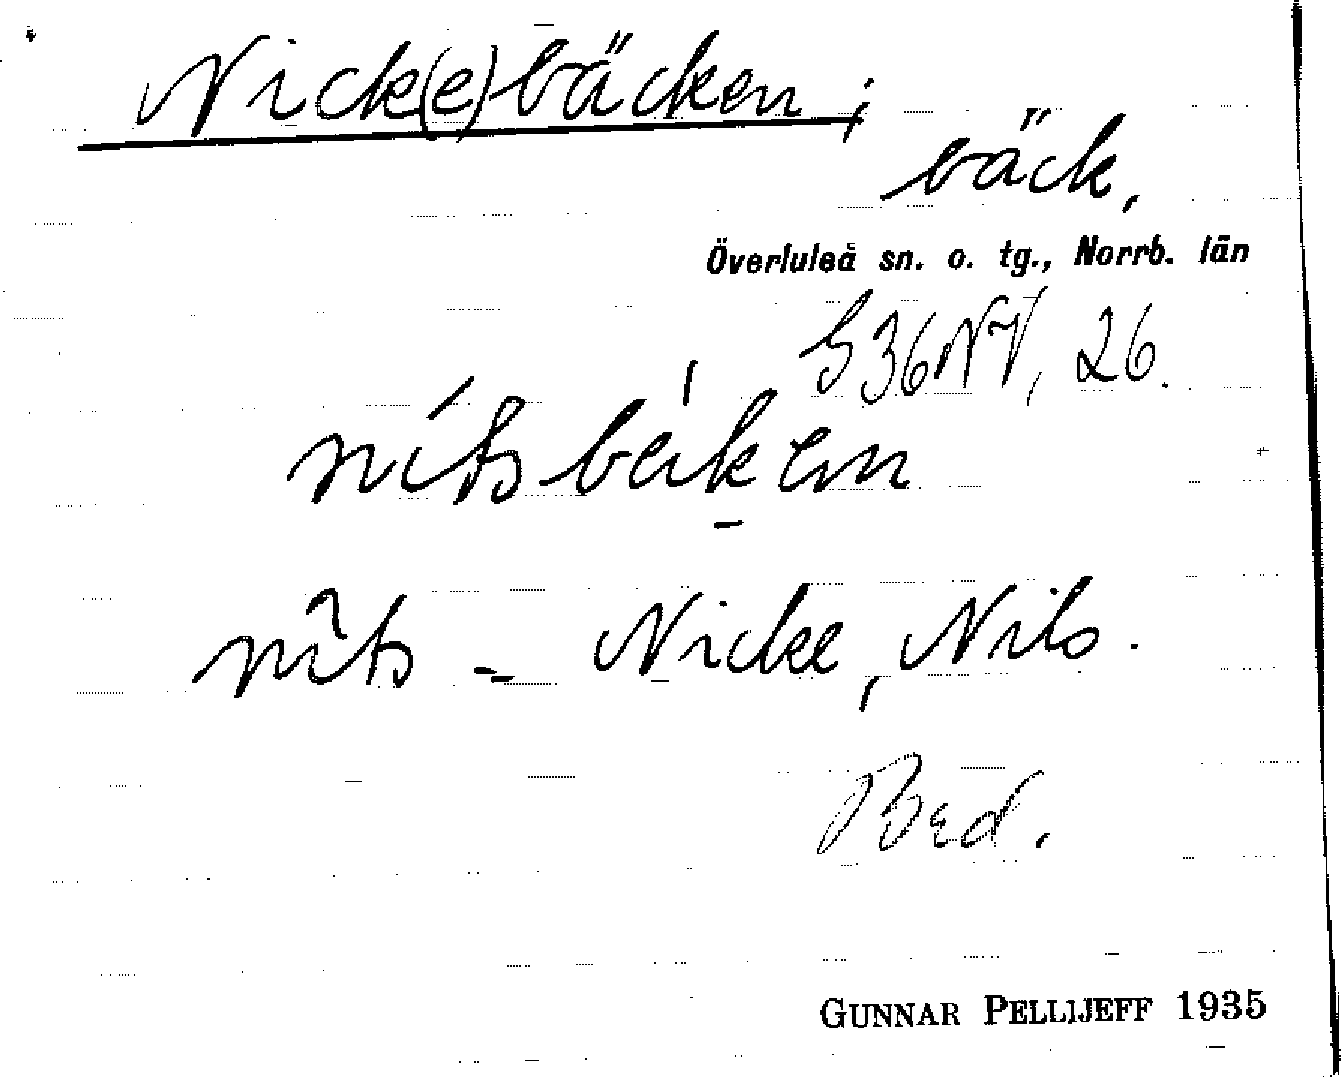 Nick(e)bäcken;
bäck,
Överluleå sn. o. tg., Norrb. län
S36NV, 26.
nítsbèken
nits = Nicke, Nils.
Bed.
GUNNAR PELLIJEFF 1935